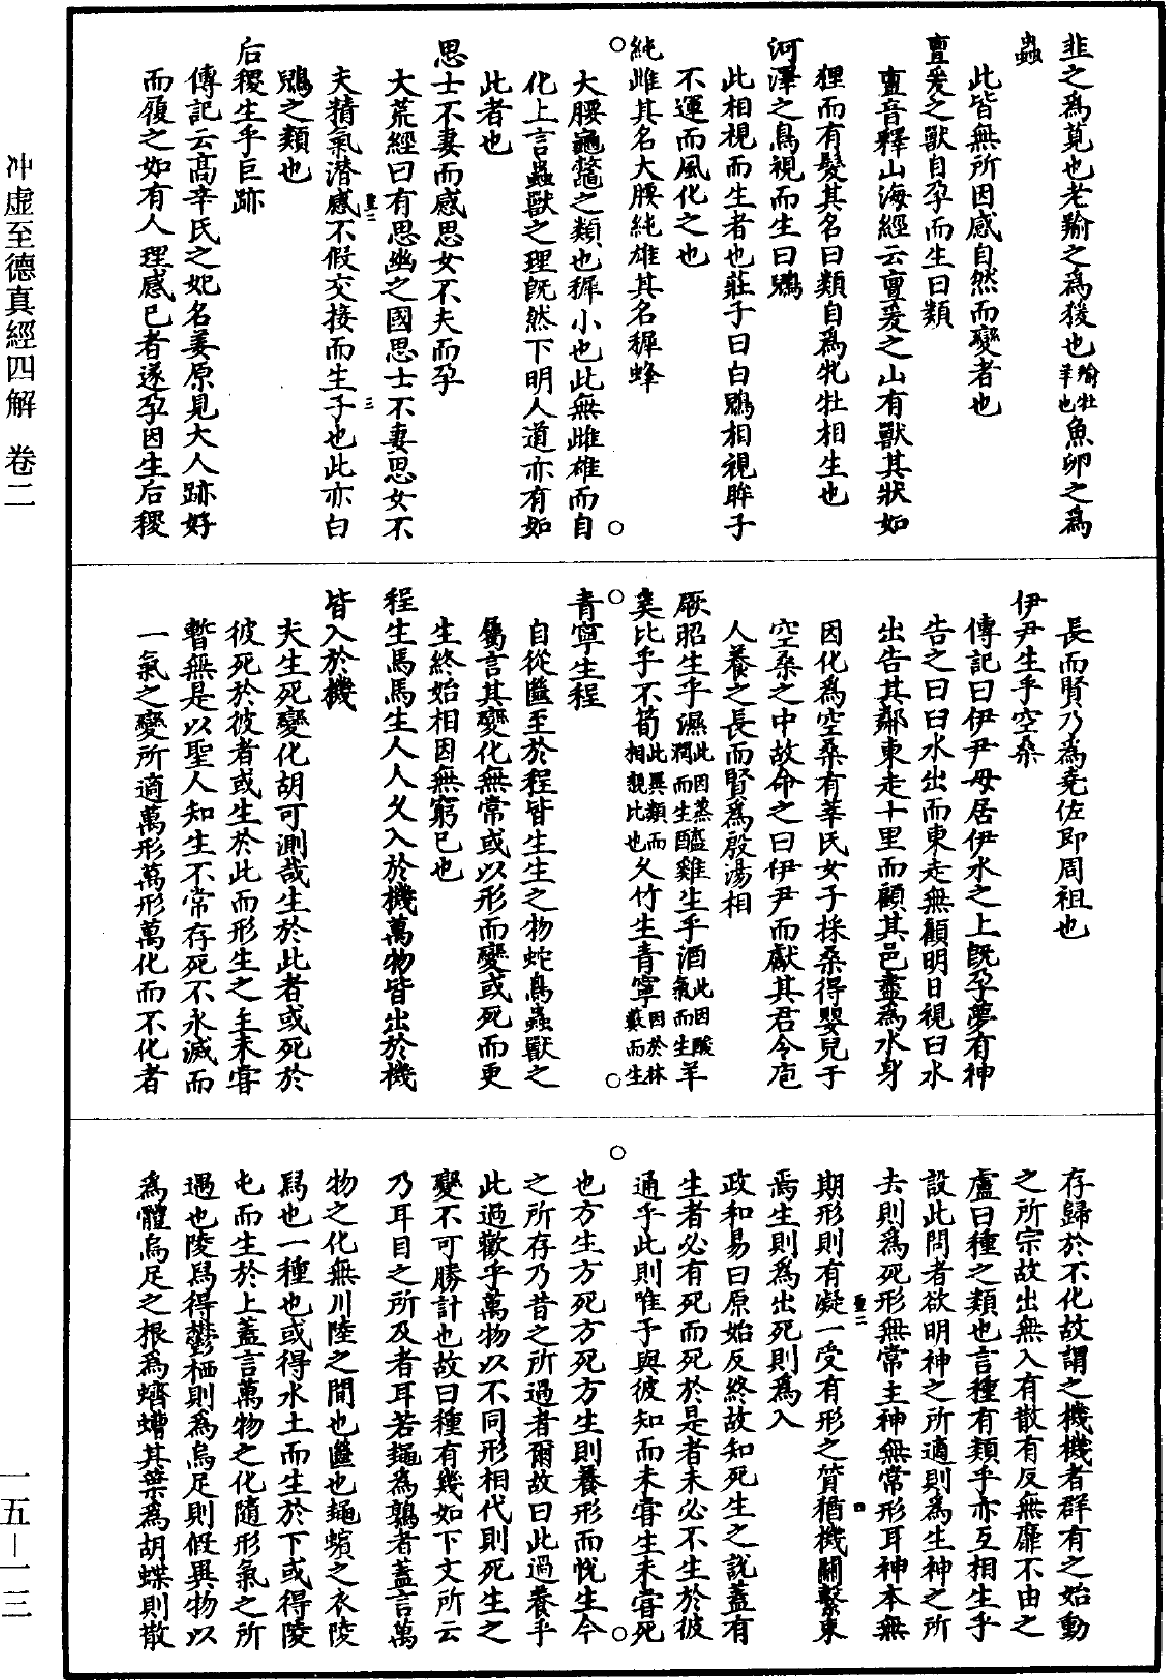 韭之為莧也老羭之為猨也羭牡羊也魚卵之為
蟲
此皆無所因感自然而變者也
亶爰之獸自孕而生曰類
亶音釋山海經云亶爰之山有獸其狀如
狸而有髮其名曰類自為牝牡相生也
河澤之鳥視而生曰鶂
此相視而生者也莊子曰白鶂相視眸子
不運而風化之也
純雌其名大腰純雄其名穉蜂
大腰龜鼈之類也穉小也此無雌雄而自
化上言蟲獸之理既然下明人道亦有如
此者也
思士不妻而感思女不夫而孕
大荒經曰有思幽之國思士不妻思女不
夫精氣潛感不假交接而生子也此亦白
鶂之類也
后稷生乎巨跡
傳記云高辛氏之妃名姜原見大人跡好
而履之如有人理感己者遂孕因生后稷
長而賢乃為堯佐即周祖也
伊尹生乎空桑
傳記曰伊尹母居伊水之上既孕夢有神
告之曰臼水出而東走無顧明日視臼水
出告其鄰東走十里而顧其邑盡為水身
因化為空桑有莘氏女子採桑得嬰兒于
空桑之中故命之曰伊尹而獻其君令庖
人養之長而賢為殷湯相
厥昭生乎濕此因蒸潤而生醯雞生乎酒此因酸氣而生羊
奚比乎不筍此異類而相親比也久竹生青寧因於林藪而生
青寧生程
自從䘇至於程皆生生之物蛇鳥蟲獸之
屬言其變化無常或以形而變或死而更
生終始相因無窮已也
程生馬馬生人人久入於機萬物皆出於機
皆入於機
夫生死變化胡可測哉生於此者或死於
彼死於彼者或生於此而形生之主未嘗
暫無是以聖人知生不常存死不永滅而
一氣之變所適萬形萬形萬化而不化者
存歸於不化故謂之機機者群有之始動
之所宗故出無入有散有反無靡不由之
盧曰種之類也言種有類乎亦互相生乎
設此問者欲明神之所適則為生神之所
去則為死形無常主神無常形耳神本無
期形則有凝一受有形之質猶機關繫束
焉生則為出死則為入
政和易曰原始反終故知死生之說蓋有
生者必有死而死於是者未必不生於彼
通乎此則唯予與彼知而未嘗生未嘗死
也方生方死方死方生則養形而悅生今
之所存乃昔之所過者爾故曰此過養乎
此過歡乎萬物以不同形相代則死生之
變不可勝計也故曰種有幾如下文所云
乃耳目之所及者耳若蠅為鶉者蓋言萬
物之化無川陸之間也䘇也蠅蠙之衣陵
舄也一種也或得水土而生於下或得陵
屯而生於上蓋言萬物之化隨形氣之所
遇也陵舄得鬱栖則為烏足則假異物以
為體烏足之根為蠐螬其葉為胡蝶則散
沖虛至德真經四解 卷二
一五—一三